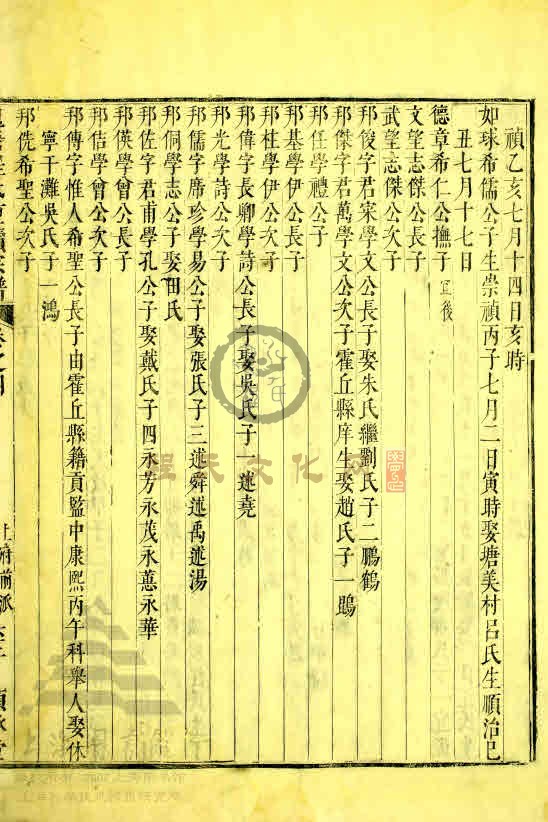 禎乙亥七月十四日亥時
如球希儒公子生崇禎丙子七月二日寅時娶塘美村呂氏生順治己
丑七月十七日
德章希仁公撫子
文望志傑公長子
武望志傑公次子
邦俊字君宋學文公長子娶朱氏繼劉氏子二鵬鶴
邦傑字君萬學文公次子霍丘縣庠生娶趙氏子一鵾
邦任學禮公子
邦基學伊公長子
邦柱學伊公次子
邦偉字長卿學詩公長子娶吳氏子一述堯
邦光學詩公次子
邦儒字席珍學易公子娶張氏子三述舜述禹述湯
邦侗學志公子娶田氏
邦佐字君甫學孔公子娶戴氏子四永芳永茂永蕙永華
邦偀學曾公長子
邦佶學曾公次子
邦傳字惟人希聖公長子由霍丘縣籍貢監中康熙丙午科舉人娶休
寧干灘吳氏子一鴻
邦侁希聖公次子
程氏文化